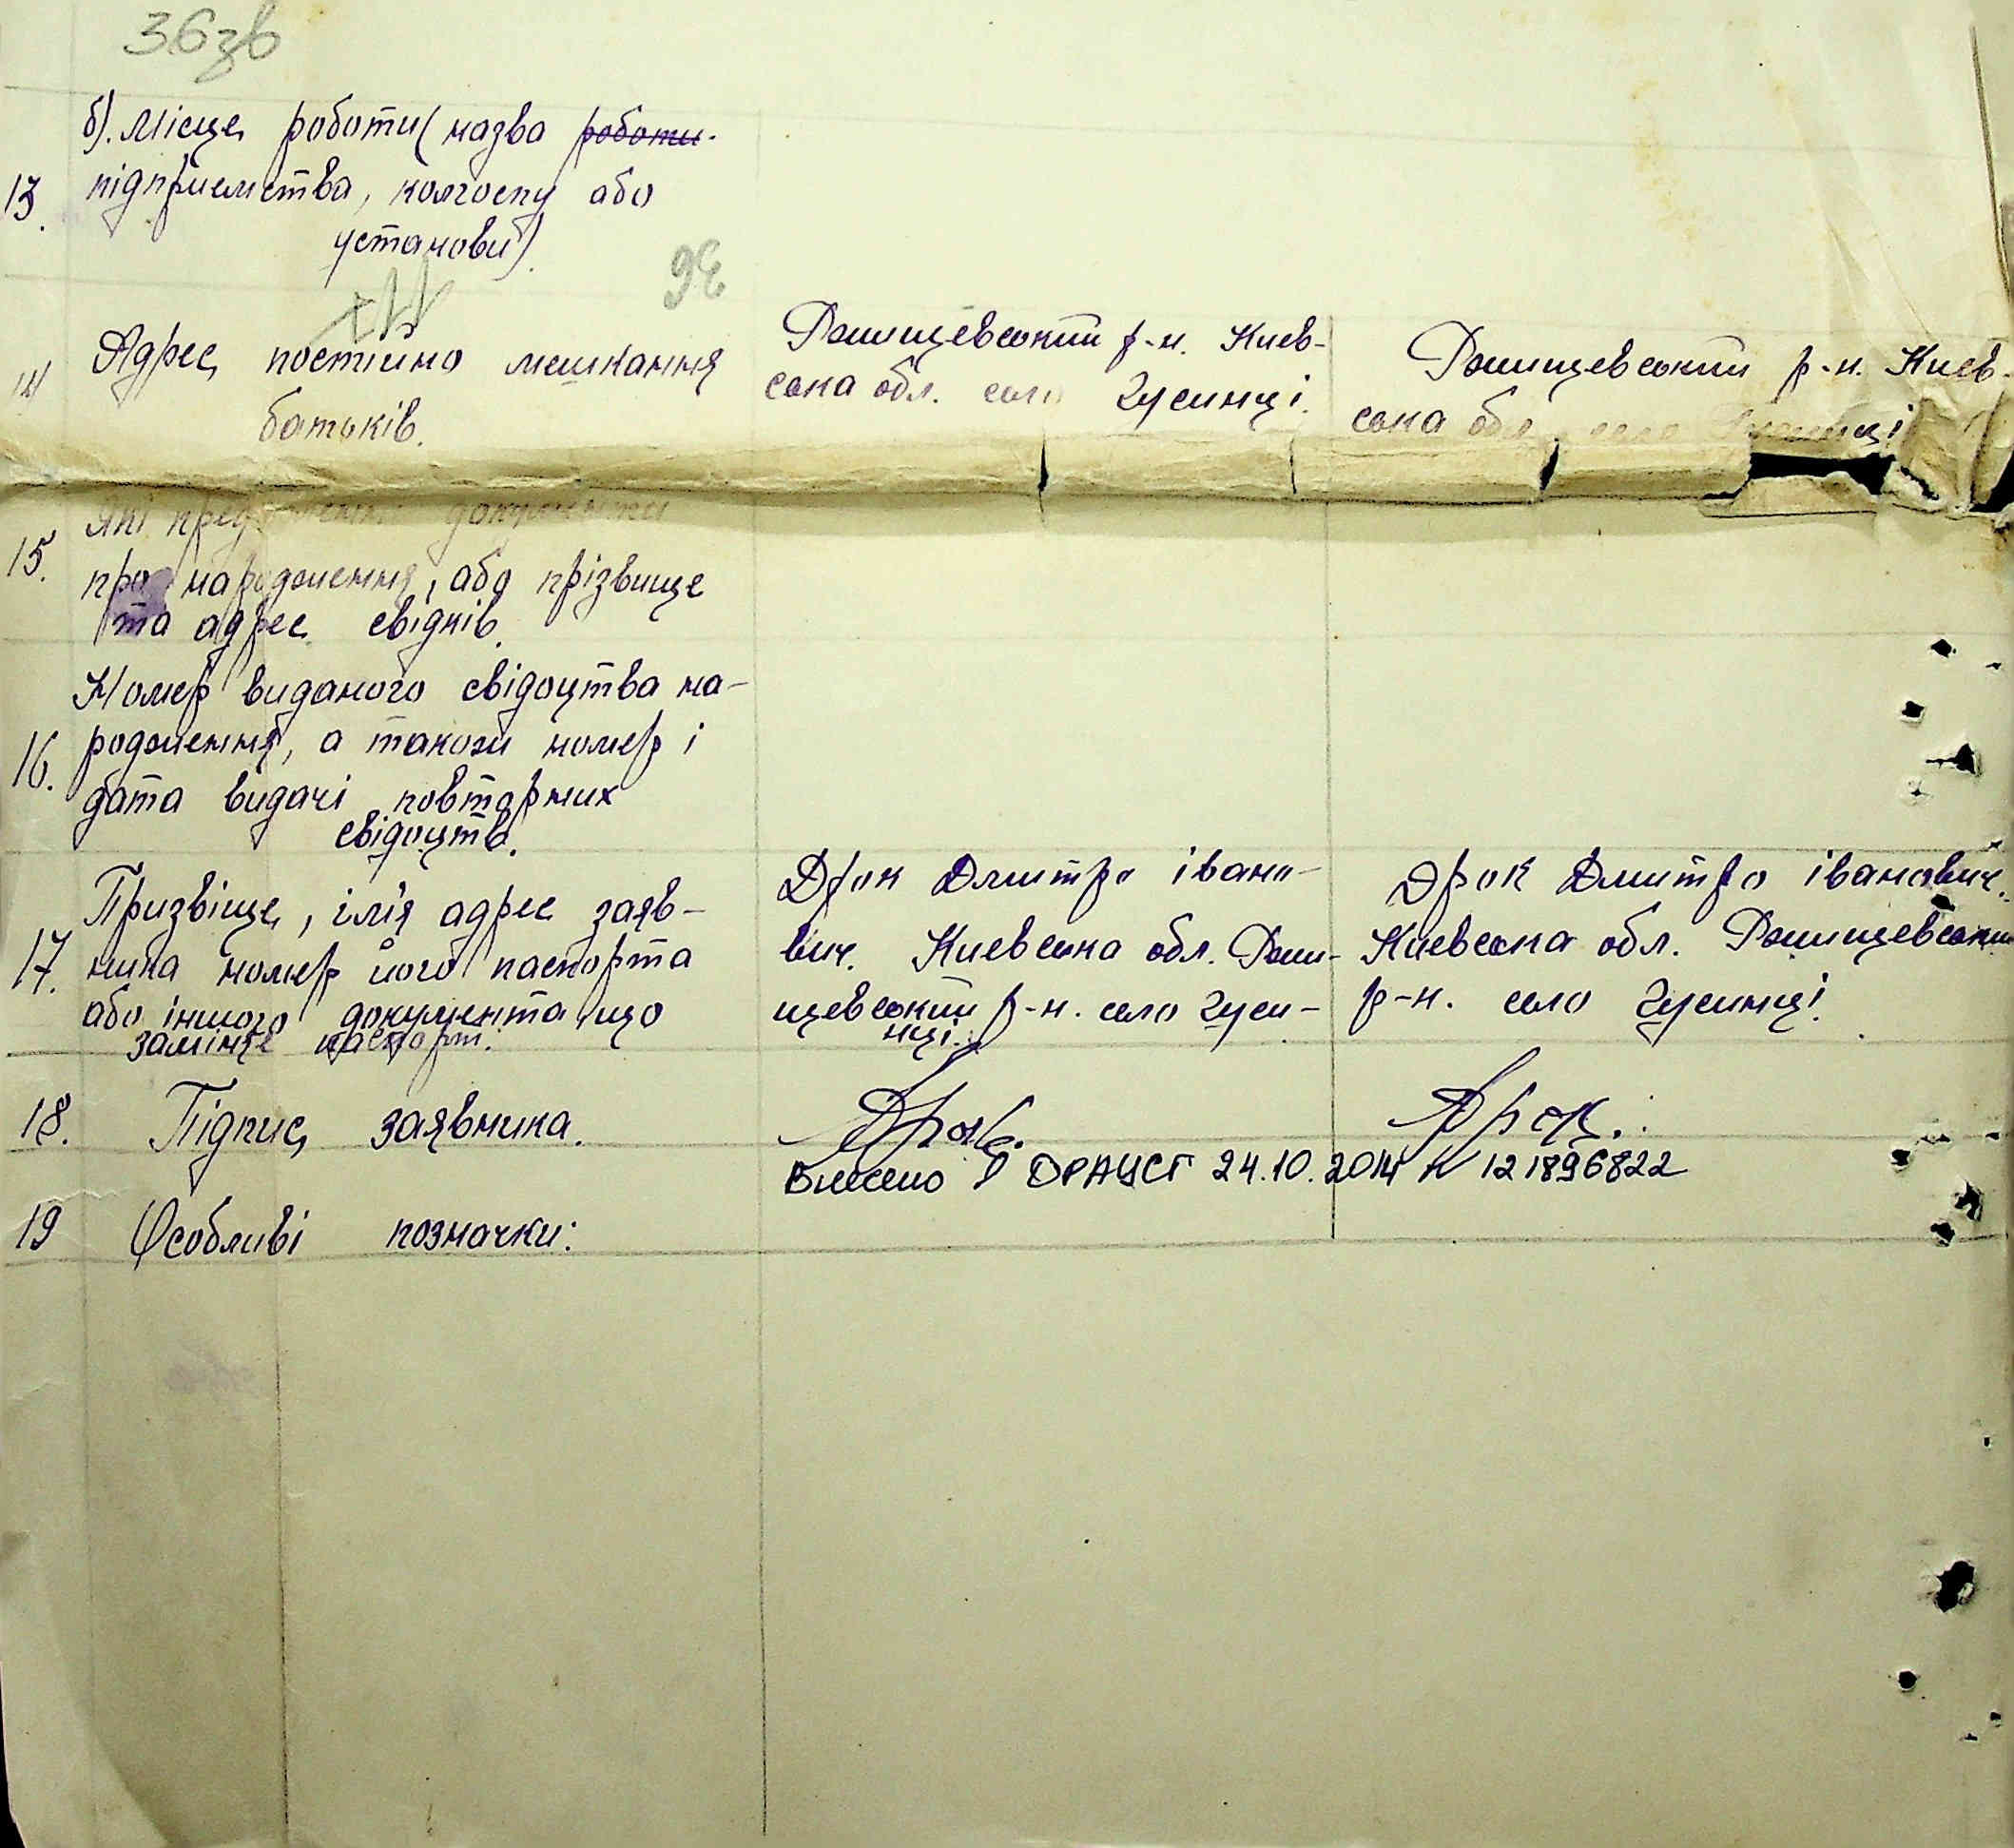 36зв
б). Місце роботи (назва роботи
13. підприємства, колгоспу або
установи).
14 Адрес постійно мешкання
батьків.
Ржищевський р-н. Киев-
ська обл. село Гусинці.
Ржищевський р-н. Киев-
ська обл. село Гусинці
Які документи
15. про народження, або прізвище
та адрес свідків.
Номер виданого свідоцтва на-
16. родження, а також номер і
дата видачі повторних
свідоцтв.
Призвіще, імʼя адрес заяв-
17. ника номер його паспорта
або іншого документа що
замінує паспорт.
Дрок Дмитро івано-
вич. Киевська обл. Ржи-
щевський р-н. село Гуси-
нці.
Дрок Дмитро іванович.
Киевська обл. Ржищевський
р-н. село Гусинці.
18. Підпис заявника.
Дрок.
Дрок.
Внесено в ДРАЦСГ 24.10.2014 N 121896822
19 Особливі позначки: